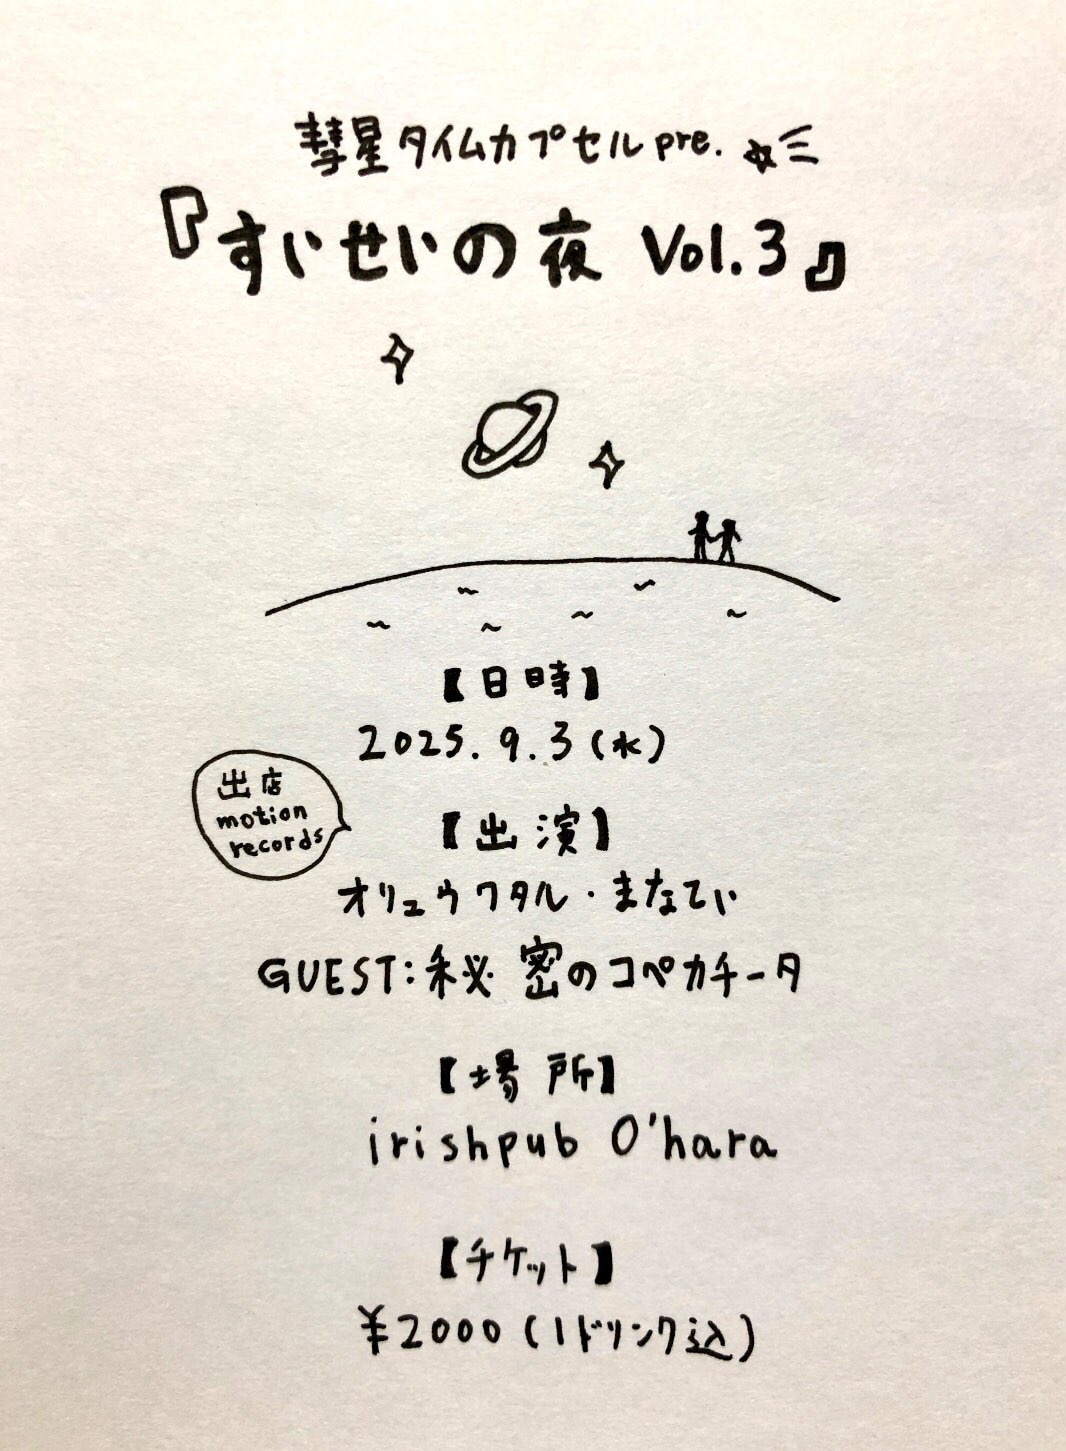 彗星タイムカプセル pre.
『すいせいの夜 Vol.3』
【日時】
2025.9.3(水)
出店
motion
records
【出演】
オリュウフタル・まなてぃ
GUEST:秘密のコペカチータ
【場所】
irishpub O'hara
【チケット】
¥2000(1ドリンク込)